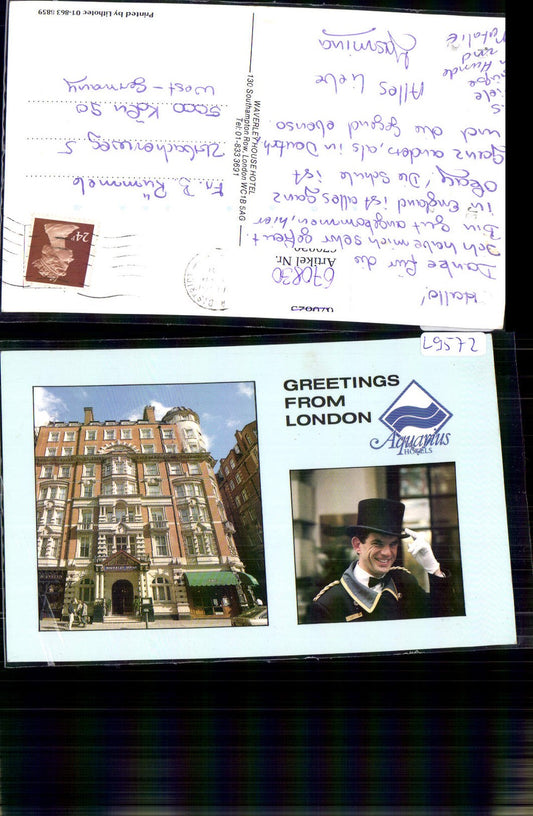 Hallo!
Danke für die
Ich habe mich sehr gefreut
Bin gut angekommen, hier
in England ist alles ganz
Okay, Die Schule ist
ganz anders, als in Deutsch
und die Gegend ebenso.
Alles Liebe
Jasmina
Artikel Nr.
670830
WAVERLEY HOUSE HOTEL
130 Southampton Row, London WC1B 5AG
Tel: 01-833 3691
Printed by Lithotec 01-863 8859
24P
5000 Köln 90
West-Germany
27567
GREETINGS
FROM
LONDON
Aquarius
HOTELS